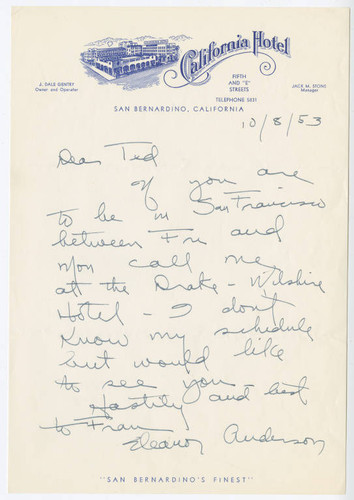 California Hotel
J. DALE GENTRY
Owner and Operator
FIFTH
AND "E"
STREETS
TELEPHONE 5831
JACK M. STONE
Manager
SAN BERNARDINO, CALIFORNIA
10/8/53
Dear Ted
If you are
to be in San Francisco
between Fri and
Mon call me
att the Drake-Wilshire
Hotel - I don't
know my schedule
but would like
to see you -
Hastily and best
to Fran
Eleanor Anderson
"SAN BERNARDINO'S FINEST"